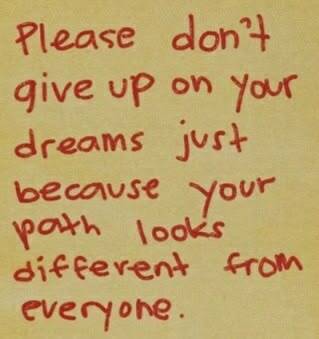 Please don't
give up on your
dreams just
because your
path looks
different from
everyone.